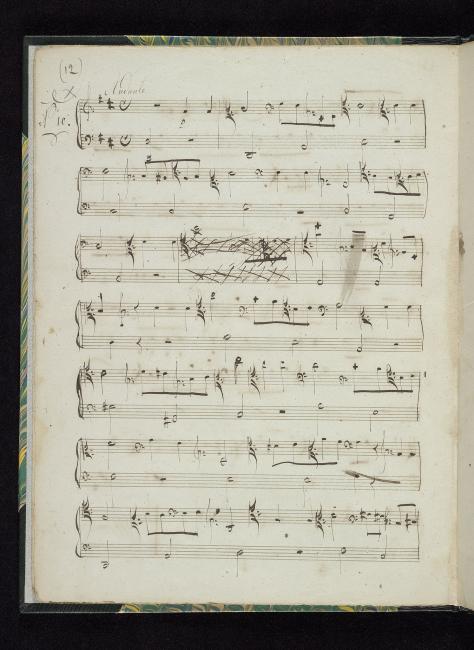 (12)
Andante
10.